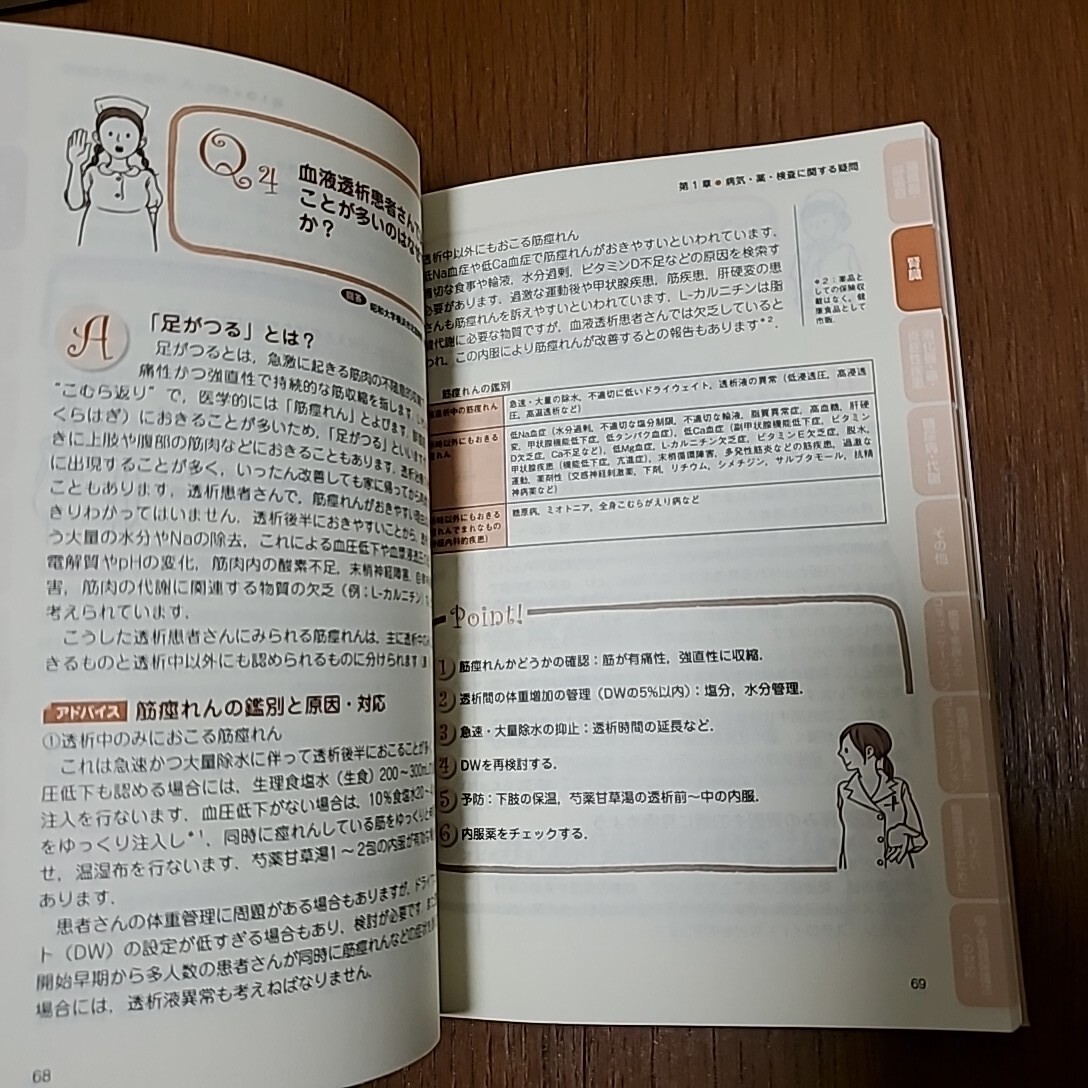 Q4
血液透析患者さんで
ことが多いのはなぜ
か？
回答 昭和大学横浜市北部
A
「足がつる」とは？
足がつるとは，急激に起きる筋肉の不随意的
痛性かつ強直性で持続的な筋収縮を指します．
“こむら返り”で，医学的には「筋痙れん」とよびます．
くらはぎ）におきることが多いため，「足がつる」といいます
きに上肢や腹部の筋肉などにおきることもあります．透析
に出現することが多く，いったん改善しても家に帰ってから
こともあります．透析患者さんで，筋痙れんがおきやすい
きりわかってはいません．透析後半におきやすいことから，
う大量の水分やNaの除去，これによる血圧低下や血漿浸透圧
電解質やpHの変化，筋肉内の酸素不足，末梢神経障害，自律
害，筋肉の代謝に関連する物質の欠乏（例：L-カルニチン）
考えられています．
こうした透析患者さんにみられる筋痙れんは，主に透析中
きるものと透析中以外にも認められるものに分けられます
アドバイス 筋痙れんの鑑別と原因・対応
①透析中のみにおこる筋痙れん
これは急速かつ大量除水に伴って透析後半におこることが多
圧低下も認める場合には，生理食塩水（生食）200～300mL
注入を行ないます．血圧低下がない場合は，10％食塩水20～
をゆっくり注入し*1，同時に痙れんしている筋をゆっくりと
せ，温湿布を行ないます．芍薬甘草湯1～2包の内服が有効
あります．
患者さんの体重管理に問題がある場合もありますが，ドライ
ト（DW）の設定が低すぎる場合もあり，検討が必要です．
開始早期から多人数の患者さんが同時に筋痙れんなどの症状
場合には，透析液異常も考えねばなりません．
68
第1章●病気・薬・検査に関する疑問
透析中以外にもおこる筋痙れん
低Na血症や低Ca血症で筋痙れんがおきやすいといわれています．
適切な食事や輸液，水分過剰，ビタミンD不足などの原因を検索す
必要があります．過激な運動後や甲状腺疾患，筋疾患，肝硬変の患
さんも筋痙れんを訴えやすいといわれています．L-カルニチンは脂
代謝に必要な物質ですが，血液透析患者さんでは欠乏していると
われ，この内服により筋痙れんが改善するとの報告もあります*2．
＊2：薬品と
しての保険収
載はなく，健
康食品として
市販．
腎臓
筋痙れんの鑑別
透析中の筋痙れん
急速・大量の除水，不適切に低いドライウェイト，透析液の異常（低浸透圧，高浸透
圧，高温透析など）
時以外にもおきる
れん
低Na血症（水分過剰，不適切な塩分制限，不適切な輸液，脂質異常症，高血糖，肝硬
変，甲状腺機能低下症，低タンパク血症），低Ca血症（副甲状腺機能低下症，ビタミン
D欠乏症，Ca不足など），低Mg血症，L-カルニチン欠乏症，ビタミンE欠乏症，脱水，
甲状腺疾患（機能低下症，亢進症），末梢循環障害，多発性筋炎などの筋疾患，過激な
運動，薬剤性（交感神経刺激薬，下剤，リチウム，シメチジン，サルブタモール，抗精
神病薬など）
時以外にもおきる
れんでまれなもの
内科的疾患）
糖原病，ミオトニア，全身こむらがえり病など
Point!
1 筋痙れんかどうかの確認：筋が有痛性，強直性に収縮．
2 透析間の体重増加の管理（DWの5％以内）：塩分，水分管理．
3 急速・大量除水の抑止：透析時間の延長など．
4 DWを再検討する．
5 予防：下肢の保温，芍薬甘草湯の透析前～中の内服．
6 内服薬をチェックする．
その他
69